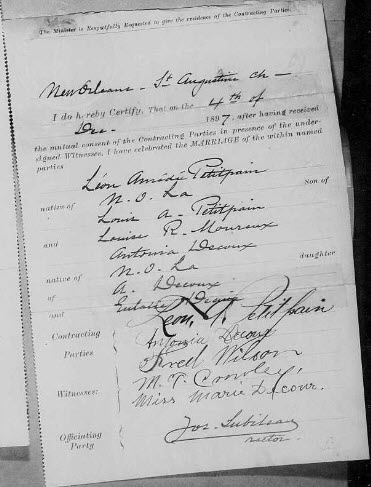 The Minister is Respectfully Requested to give the residence of the Contracting Parties.
New Orleans - St Augustine Ch -
I do hereby Certify, That on the 4th of
Dec. 1897, after having received
the mutual consent of the Contracting Parties in presence of the under-
signed Witnesses, I have celebrated the MARRIAGE of the within named
parties
Léon Petitpain
native of N. O. La Son of
Louis A. Petitpain
and Louise R. Mouroux
Antonia Decoux
native of N. O. La daughter
of A. Decoux
and Eulalie
Leon Petitpain
Contracting Antonia Decoux
Parties Fred Wilson
Witnesses: M. T. Crowley,
Miss Marie Decour.
Officiating Jos. Subileau
Party rector.